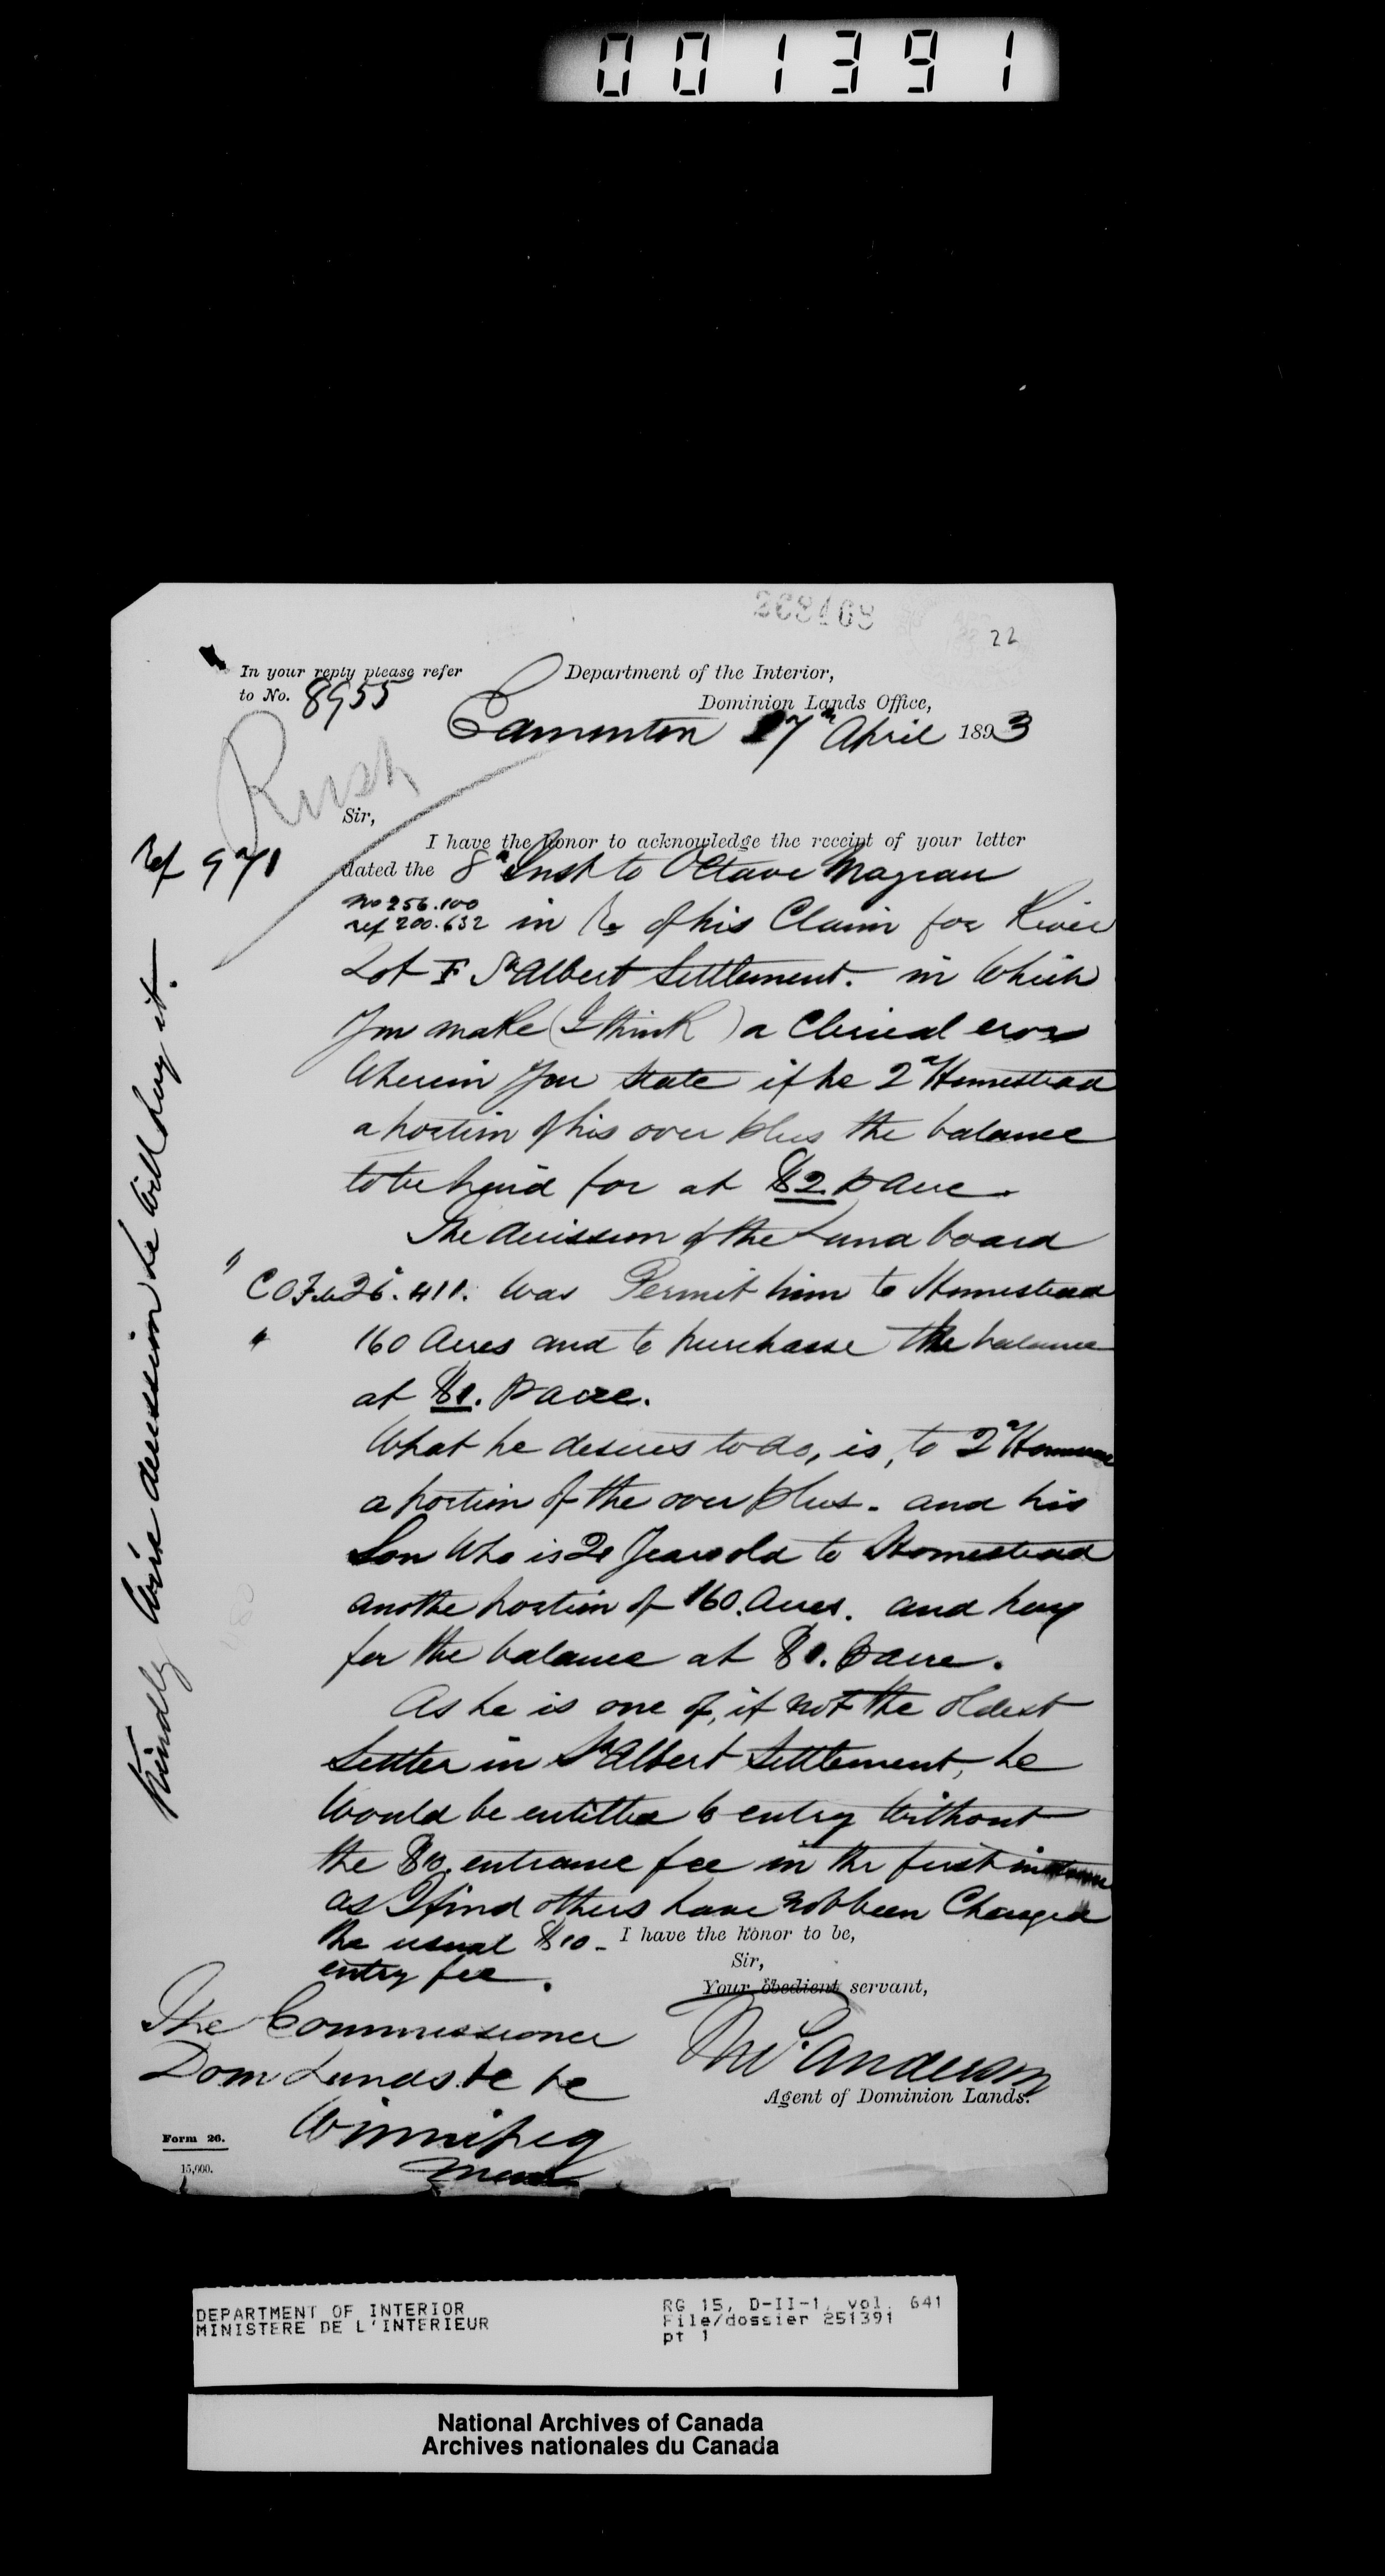 001391
268408
22
In your reply please refer
to No. 8955
Department of the Interior,
Dominion Lands Office,
Edmonton 17th April 1893
Rush
Sir,
Ref 971
I have the honor to acknowledge the receipt of your letter
dated the 8th Inst to Octave Majeau
No 256.100
ref 200.632 in Re of his Claim for River
Lot F St Albert Settlement. in Which
You make (I think) a Clerical error
Wherein You State if he 2nd Homestead
a portion of his over plus the balance
to be paid for at $2 p acre.
The decission of the Land board
" C O Feb 26. 411. Was Permit him to Homestead
" 160 Acres and to purchasse the balance
at $1. p acre.
What he desires to do, is, to 2nd
a portion of the over plus - and his
Son Who is 20 Years old to Homestead
anothe portion of 160. Acres. and pay
for the balance at $1. p acre.
As he is one of, if not the oldest
Settler in St Albert Settlement, he
Would be entitled to entry Without
the $10. entrance fee in the first
as I find others have not been Charged
the usual $10 -
entry fee.
I have the honor to be,
Sir,
Your obedient servant,
Tho. Anderson
Agent of Dominion Lands.
The Commissioner
Dom Lands &c &c
Winnipeg
Man
Form 26.
15,000.
Kindly Wire decission he Will buy it.
DEPARTMENT OF INTERIOR
MINISTERE DE L'INTERIEUR
RG 15, D-II-1, vol. 641
File/dossier 251391
pt 1
National Archives of Canada
Archives nationales du Canada